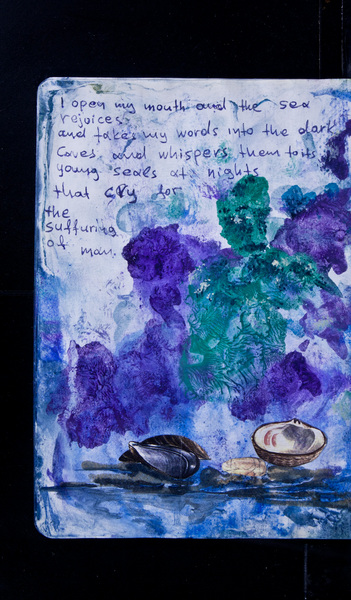 I open my mouth and the sea
rejoices
and takes my words into the dark
Caves and whispers them to its
young seals at nights
that cry for
the
suffuring
of man.